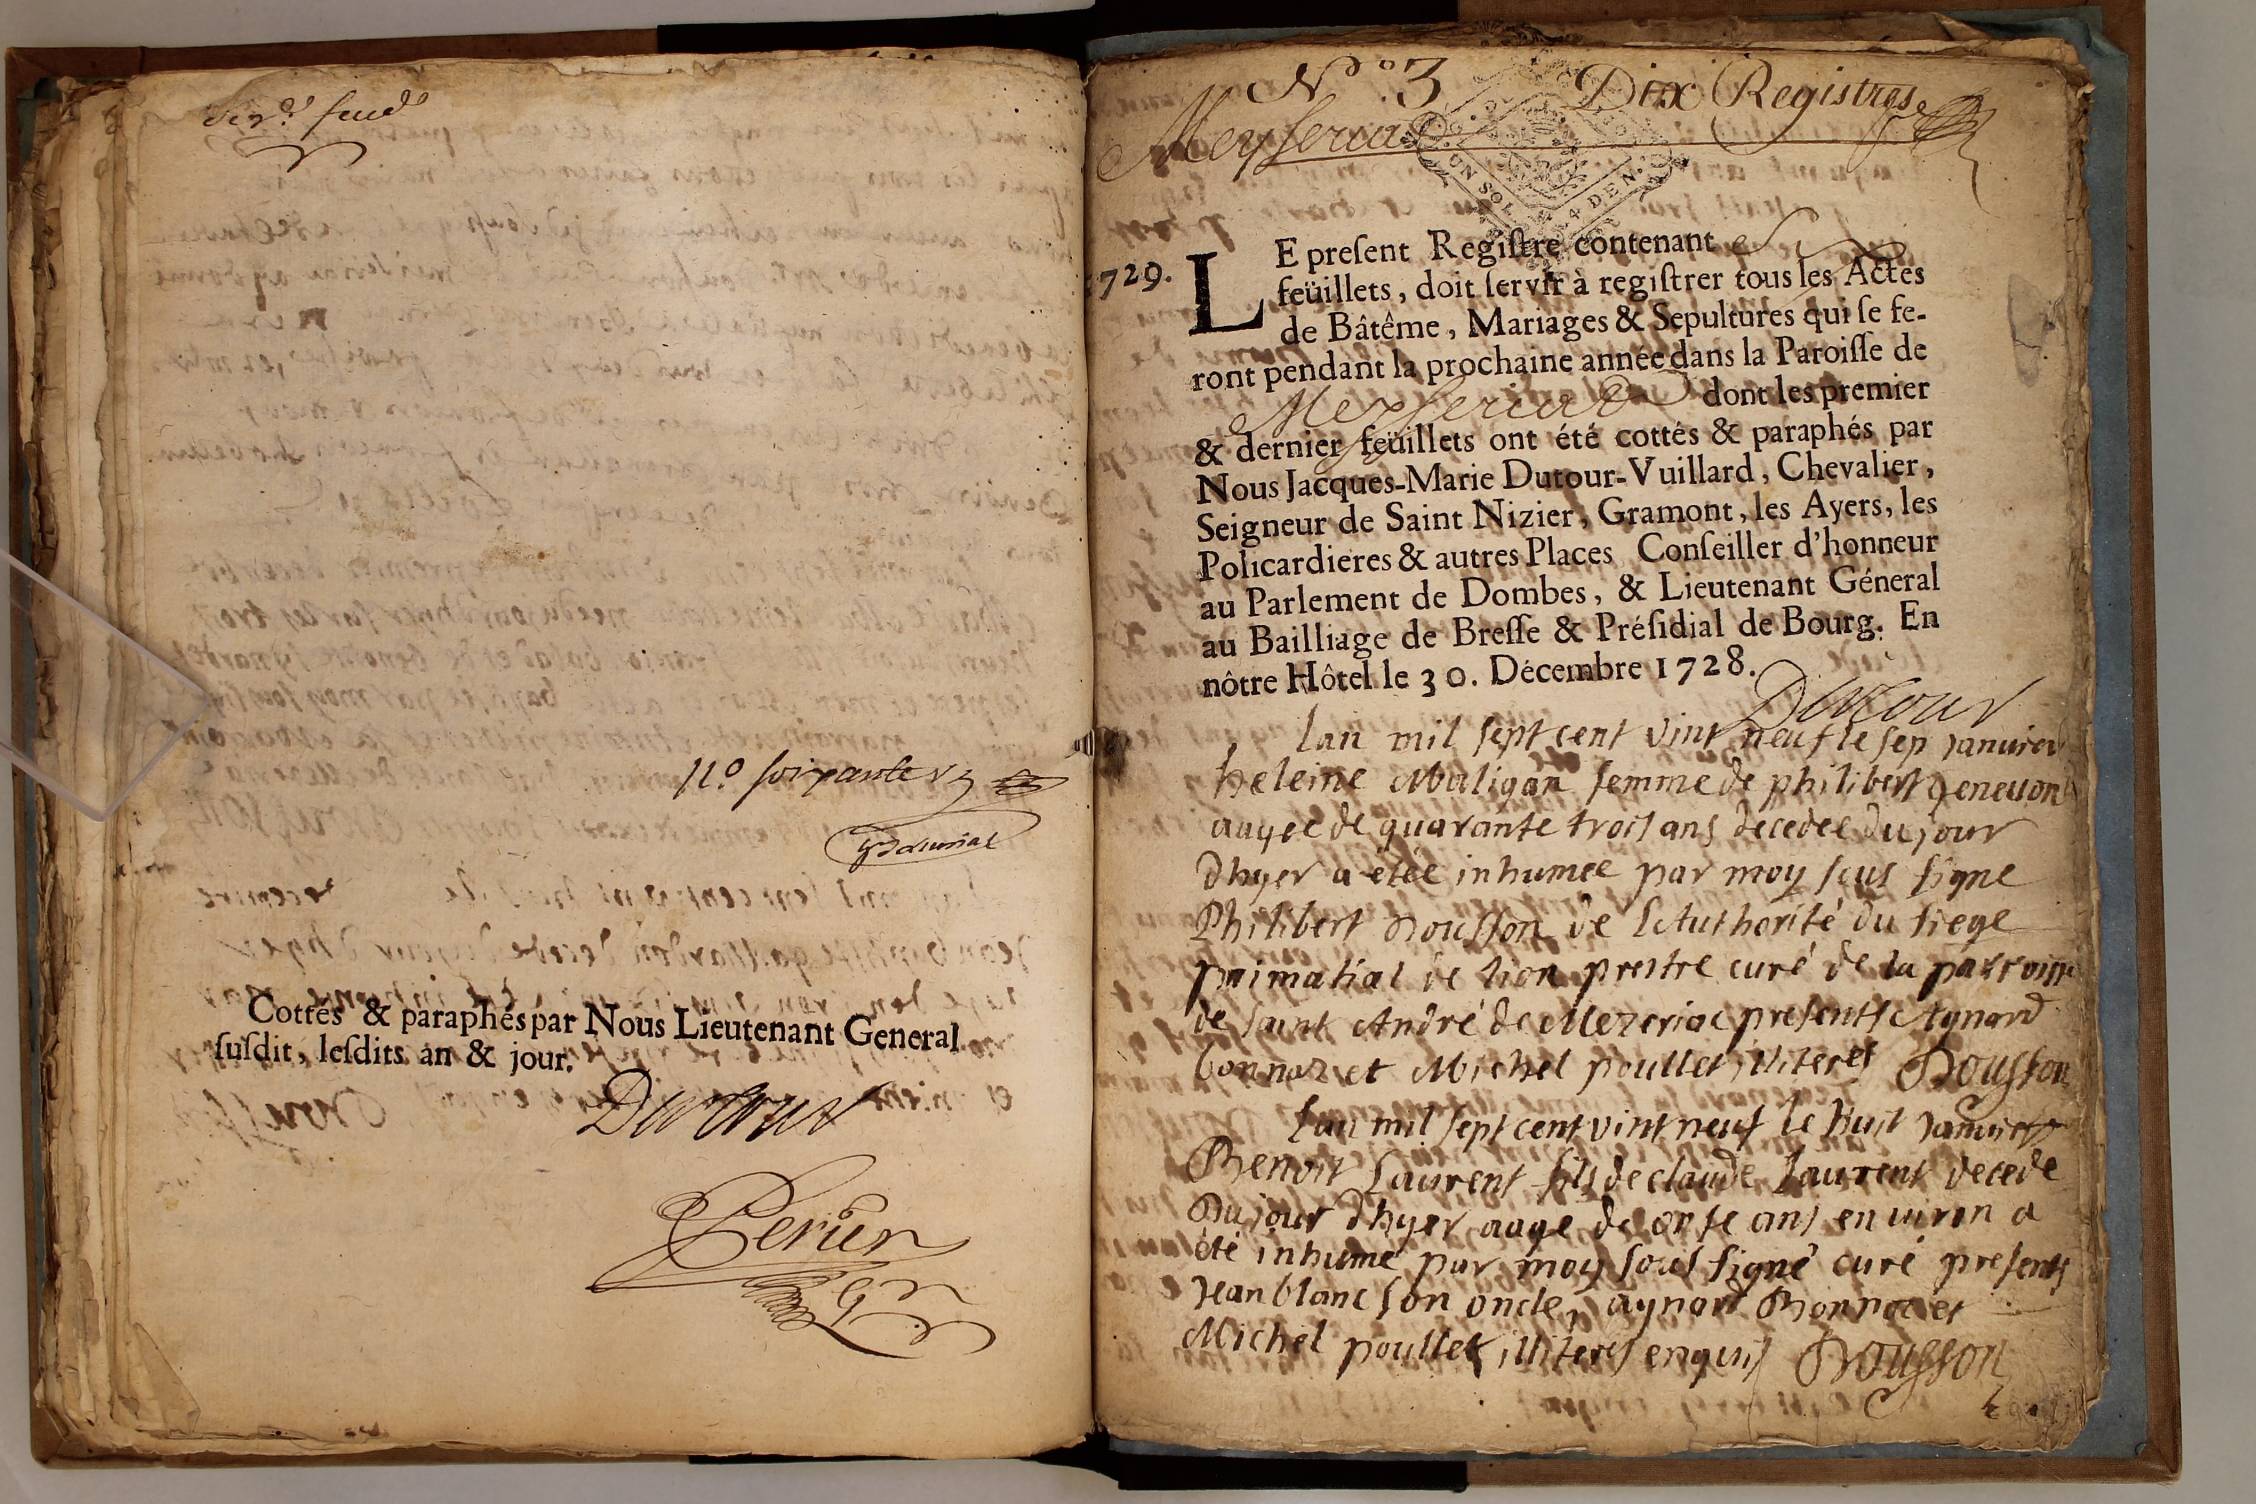 N° soixante
Cottés & paraphés par Nous Lieutenant General
ſuſdit, leſdits an & jour.
Dutour
Perier
N° 3 Dix Registres
Meyseria
UN SOL 4 DEN.
1729.
LE preſent Regiſtre contenant
feüillets, doit ſervir à regiſtrer tous les Actes
de Bâtême, Mariages & Sepultures qui ſe fe-
ront pendant la prochaine année dans la Paroiſſe de
Meyseria dont les premier
& dernier feüillets ont été cottés & paraphés par
Nous Jacques-Marie Dutour-Vuillard, Chevalier,
Seigneur de Saint Nizier, Gramont, les Ayers, les
Policardieres & autres Places Conſeiller d'honneur
au Parlement de Dombes, & Lieutenant Géneral
au Bailliage de Breſſe & Préſidial de Bourg. En
nôtre Hôtel le 30. Décembre 1728.
Dutour
Lan mil sept cent vint neuf le sep janvier
heleine Maligan femme de philibert Jenevon
aagee de quarante trois ans decedee du jour
dhyer a etée inhumée par moy sous signe
Philibert Bousson de l'Authorité du siege
primatial de lion prestre curé de la parroisse
de saint André de Mezeriac presents Aynard
bonnaz et Michel poullet illiteres Bousson
Lan mil sept cent vint neuf le huit janvier
Benoit Laurent fils de claude Laurent decede
Du jour dhyer aage de onse ans environ a
été inhumé par moy sous signé curé presents
Jean blanc son oncle, aynard Bonnaz et
Michel poullet illiteres enquis Bousson